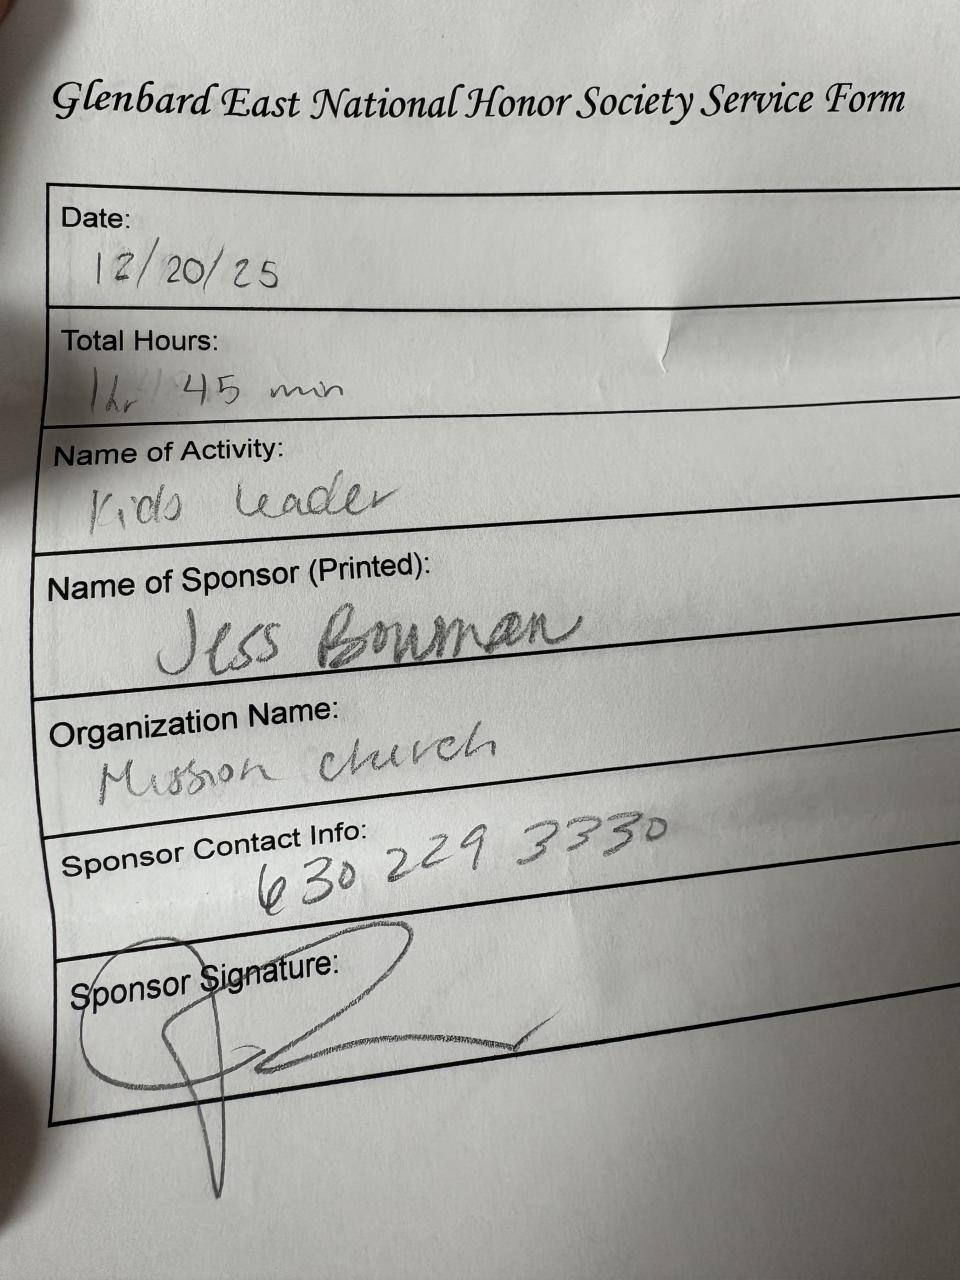 Glenbard East National Honor Society Service Form
Date:
12/20/25
Total Hours:
1hr 45 min
Name of Activity:
Kids leader
Name of Sponsor (Printed):
Jess Bowman
Organization Name:
Mission church
Sponsor Contact Info:
630 229 3330
Sponsor Signature: